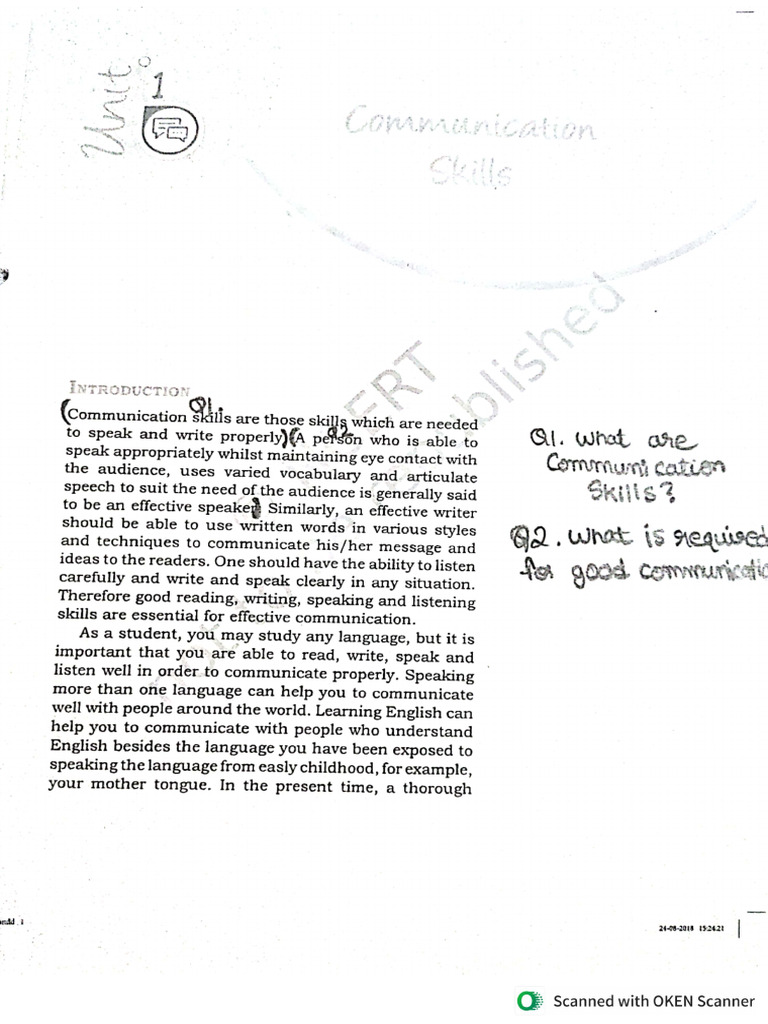 Unit
1
Communication
Skills
INTRODUCTION
Q1.
(Communication skills are those skills which are needed
Q2
to speak and write properly)(A person who is able to
speak appropriately whilst maintaining eye contact with
the audience, uses varied vocabulary and articulate
speech to suit the need of the audience is generally said
to be an effective speaker) Similarly, an effective writer
should be able to use written words in various styles
and techniques to communicate his/her message and
ideas to the readers. One should have the ability to listen
carefully and write and speak clearly in any situation.
Therefore good reading, writing, speaking and listening
skills are essential for effective communication.
As a student, you may study any language, but it is
important that you are able to read, write, speak and
listen well in order to communicate properly. Speaking
more than one language can help you to communicate
well with people around the world. Learning English can
help you to communicate with people who understand
English besides the language you have been exposed to
speaking the language from easly childhood, for example,
your mother tongue. In the present time, a thorough
Q1. What are
Communication
Skills?
Q2. What is required
for good communicatio
published
24-08-2018 15:24:21
Scanned with OKEN Scanner